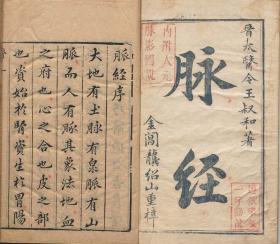 晉太醫令王叔和著
脉經
金閶龔紹山重梓
脉經序
大地有土脉有泉脈有山
脉而人有脉其象法地血
之府也心之合也皮之部
也資始於腎資生於胃陽